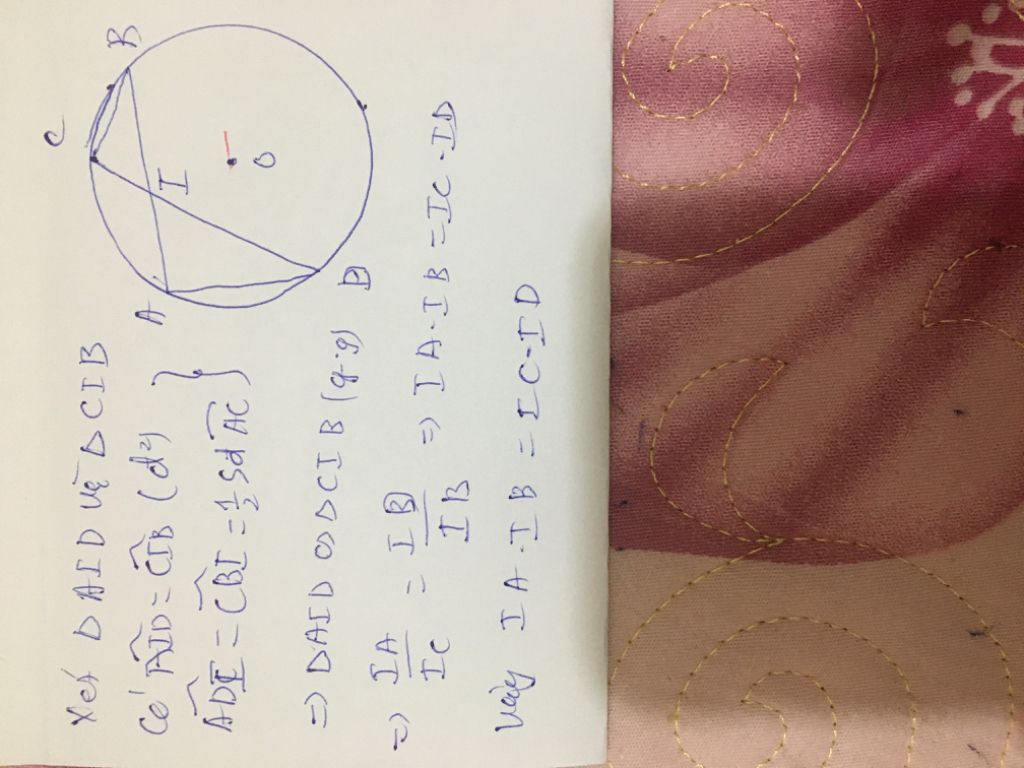 C
B
A
I
O
D
Xét ΔAID và ΔCIB
Có AID = CIB (đ²)
ADI = CBI = 1/2 Sđ AC }
=> ΔAID ∽ ΔCIB (g.g)
=> IA/IC = ID/IB => IA.IB = IC.ID
Vậy IA.IB = IC.ID